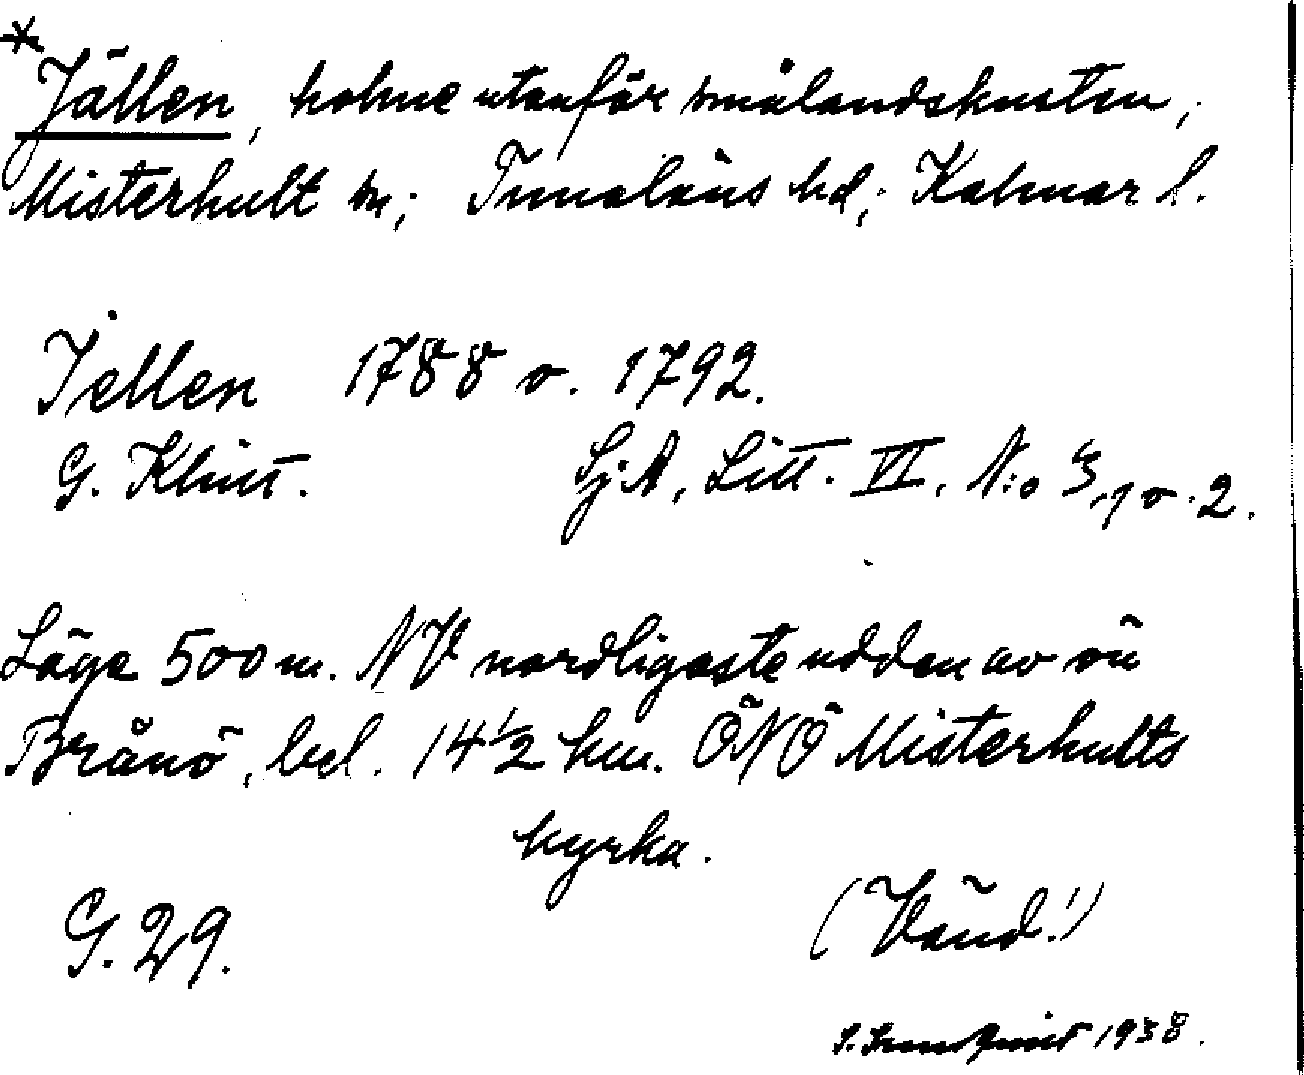 * Jällen, holme utanför smålandskusten,
Misterhult sn; Tunaläns hd; Kalmar l.
Jellen 1788 o. 1792.
G. Klint. Sj.A, Litt. VI, N:o 3, 1 o. 2.
Läge 500 m. NV nordligaste udden av ön
Brånö, bel. 14½ km. ÖNÖ Misterhults
kyrka.
G. 29. (Vänd!)
1938.